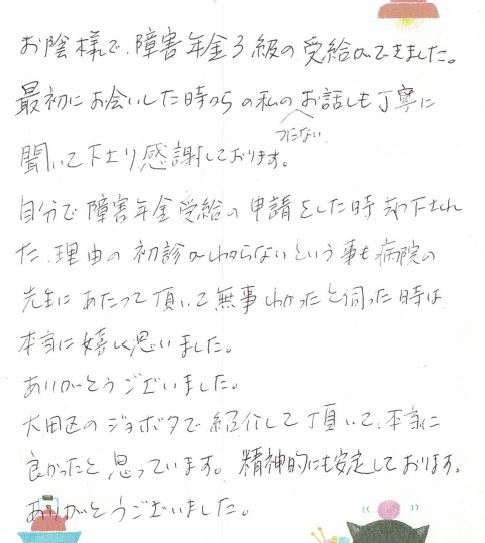 お陰様で、障害年金3級の受給ができました。
最初にお会いした時からの私のつたないお話しも丁寧に
聞いて下さり感謝しております。
自分で障害年金受給の申請をした時却下された、
理由の初診がわからないという事も病院の
先生にあたって頂いて無事わかったと伺った時は
本当に嬉しく思いました。
ありがとうございました。
大田区のジョボタで紹介して頂いて、本当に
良かったと思っています。精神的にも安定しております。
ありがとうございました。